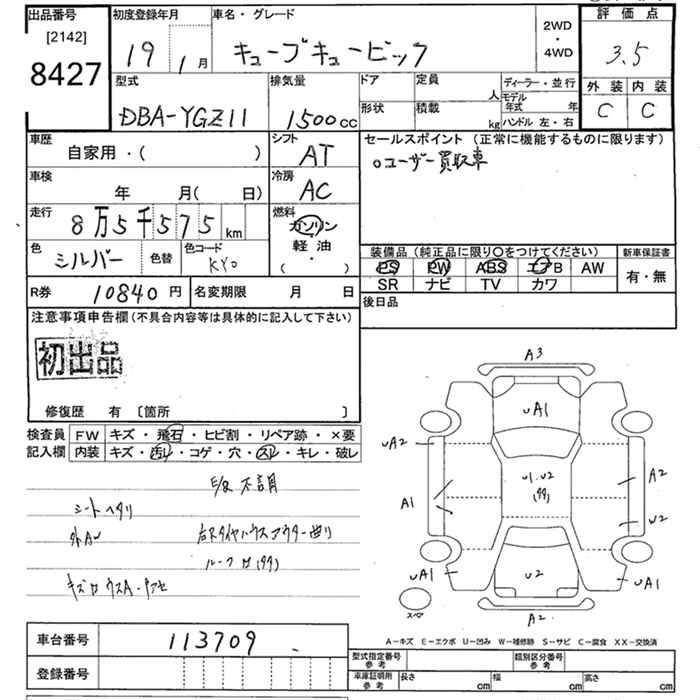 出品番号 初度登録年月 車名・グレード 2WD・4WD 評価点
[2142]
8427 19 1月 キューブキュービック 3.5
型式 排気量 ドア 定員 人 ディーラー・並行 外装 内装
DBA-YGZ11 1500cc 形状 積載 kg モデル年式 年 ハンドル 左・右 C C
車歴 シフト セールスポイント (正常に機能するものに限ります)
自家用・( ) AT ○ユーザー買取車
車検 冷房
年 月( 日) AC
走行 燃料
8万5千575km ガソリン
色 色替 色コード 軽油・
シルバー KY0 ( )
装備品 (純正品に限り〇をつけてください) 新車保証書
PS PW ABS エアB AW 有・無
SR ナビ TV カワ
R券 10840円 名変期限 月 日 後日品
注意事項申告欄(不具合内容等は具体的に記入して下さい)
初出品
修復歴 有 〔箇所 〕
検査員 FW キズ・飛石・ヒビ割・リペア跡・×要
記入欄 内装 キズ・汚レ・コゲ・穴・スレ・キレ・破レ
不明
シートヘタリ
右Rタイヤハウスアウター曲り
A3
UA1
UA2
U1.U2
A2
A1
W2
UA1
U2
UA1
スペア
A2
A-キズ E-エクボ U-凹み W-補修跡 S-サビ C-腐食 XX-交換済
車台番号 113709
登録番号
型式指定番号 参考 類別区分番号 参考
車庫証明用 参考 長さ cm 幅 cm 高さ cm